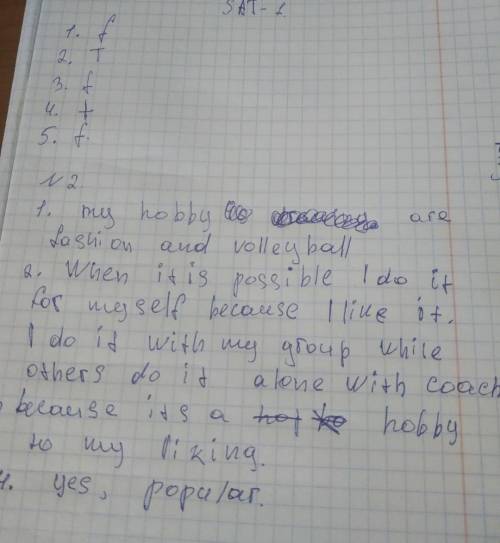 SAT-1
1. f
2. T
3. f
4. t
5. f.
№2.
1. my hobby are
fashion and volleyball
2. When it is possible I do it
for myself because I like it.
I do it with my group while
others do it alone with coach
because its a hobby
to my liking.
4. yes, popular.